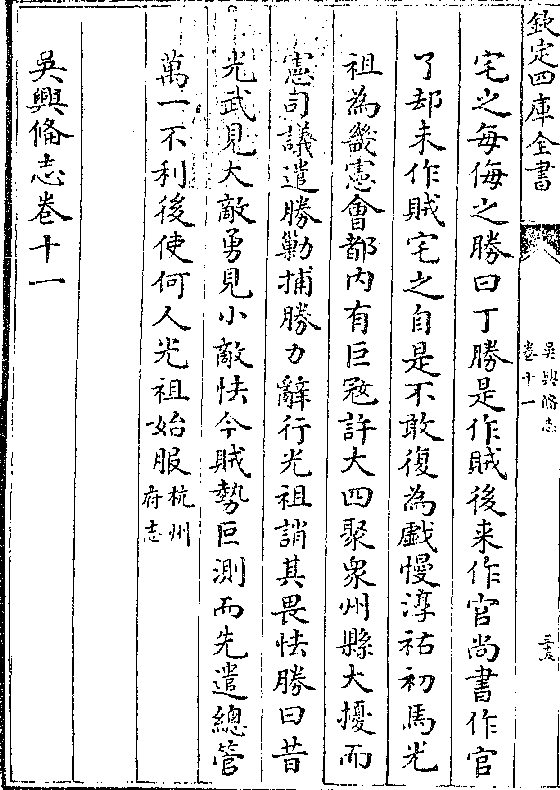 欽定四庫全書
吳興備志
卷十一
三五
宅之每侮之勝曰丁勝是作賊後来作官尚書作官
了却未作賊宅之自是不敢復為戱慢淳祐初馬光
祖為畿憲會都内有巨冦許大四聚衆州縣大擾而
憲司議遣勝勦捕勝力辭行光祖誚其畏怯勝曰昔
光武見大敵勇見小敵怯今賊勢叵測而先遣總管
萬一不利後使何人光祖始服杭州
府志
吳興備志卷十一